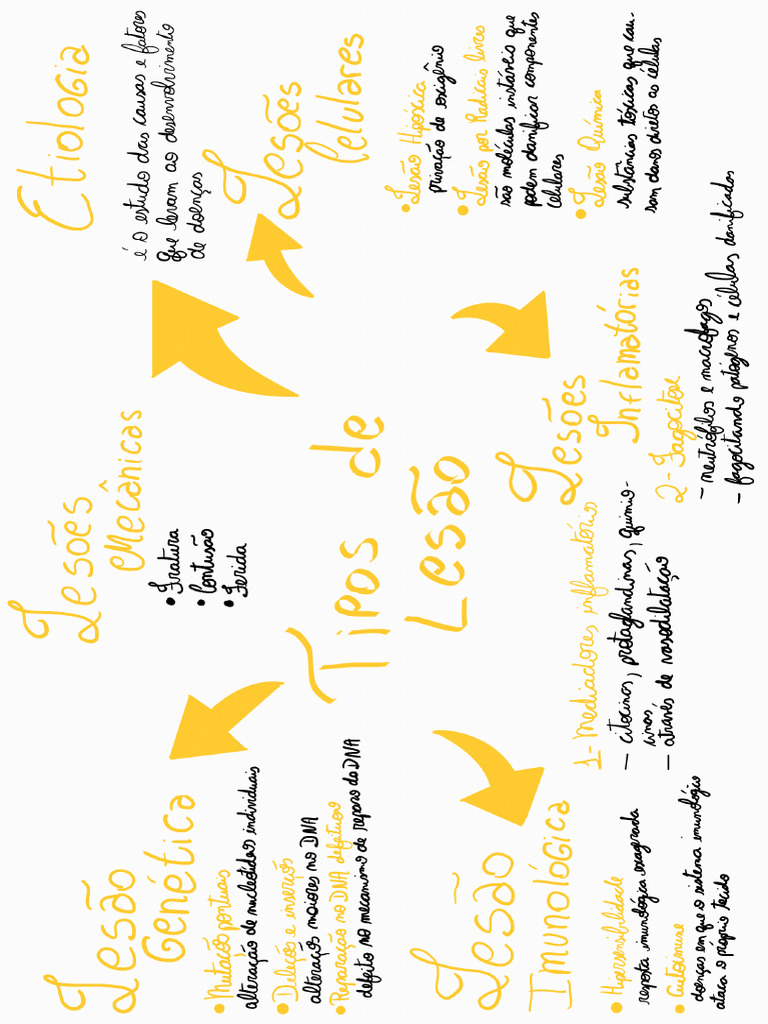 Lesão
Genética
• Mutação pontuais
alteração de nucleotídeos individuais
• Deleção e inserção
alterações maiores no DNA
• Reparação no DNA defeituoso
defeito no mecanismo de reparo do DNA
Lesões
Mecânicas
• Fratura
• Contusão
• Ferida
Etiologia
é o estudo das causas e fatores
que levam ao desenvolvimento
de doenças
Tipos de
Lesão
Lesões
Celulares
• Lesão Hipóxica
privação de oxigênio
• Lesão por Radicais livres
são moléculas instáveis que
podem danificar componentes
celulares
• Lesão Química
substâncias tóxicas que cau-
sam dano direto as células
Lesão
Imunológica
• Hipersensibilidade
resposta imunológica exagerada
• Autoimune
doenças em que o sistema imunológico
ataca o próprio tecido
Lesões
Inflamatórias
1- Mediadores inflamatórios
— citocinas, protaglandinas, quimio-
cinas,
— através de vasodilatação
2- Fagocitose
— neutrófilos e macrófagos
— fagocitando patógenos e células danificadas